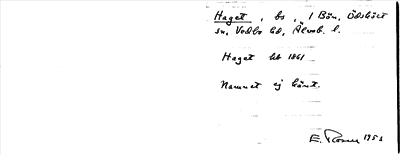 Haget, bs, 1 Bön, Ödskölt
sn, Vedbo hd, Älvsb. l.
Haget hk 1861
Namnet ej känt.
E. Rosen 1953